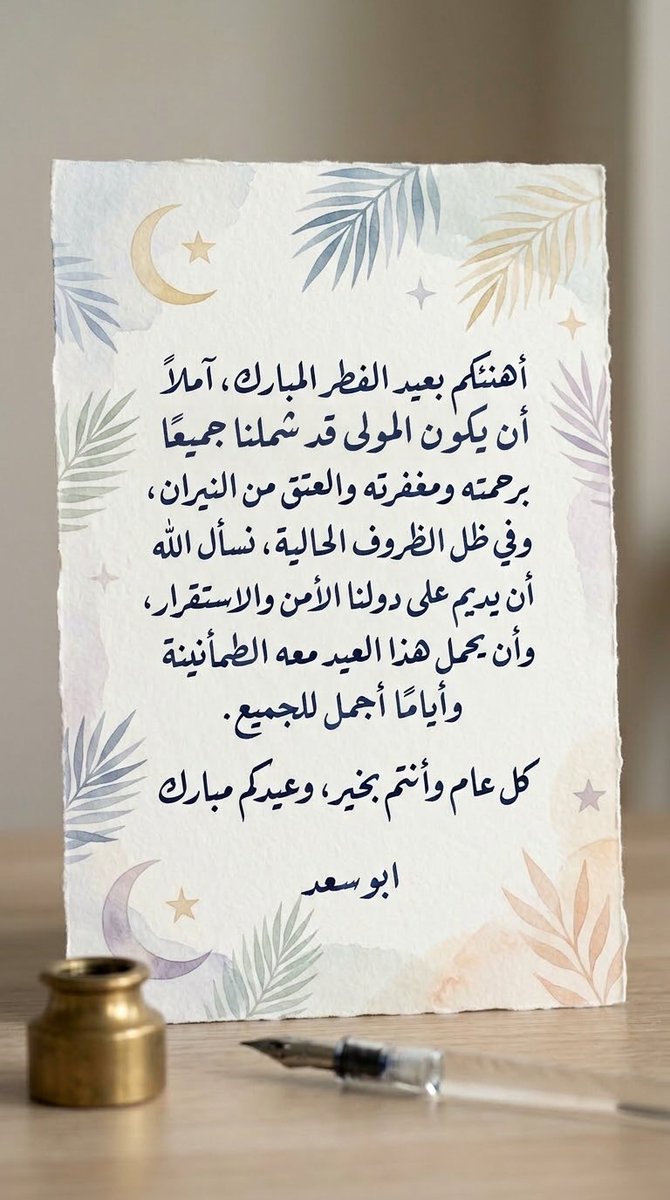 أهنئكم بعيد الفطر المبارك، آملاً
أن يكون المولى قد شملنا جميعًا
برحمته ومغفرته والعتق من النيران،
وفي ظل الظروف الحالية، نسأل الله
أن يديم على دولنا الأمن والاستقرار،
وأن يحمل هذا العيد معه الطمأنينة
وأيامًا أجمل للجميع.
كل عام وأنتم بخير، وعيدكم مبارك
ابو سعد